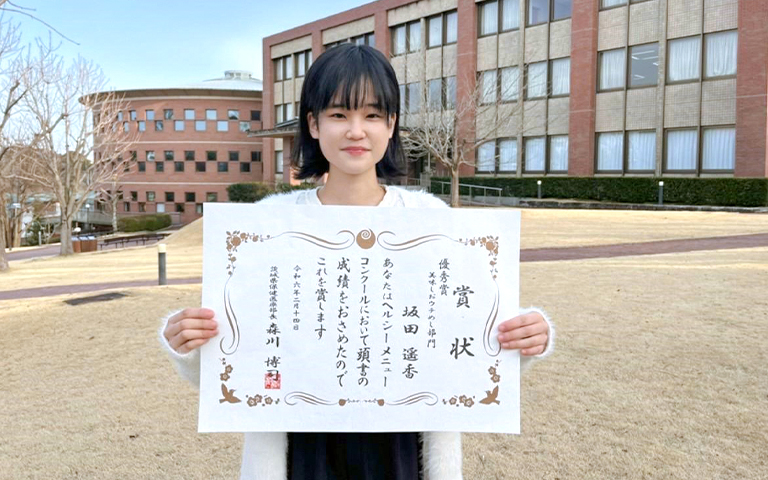 賞状
優秀賞
美味しおウチめし部門
坂田遥香
あなたはヘルシーメニュー
コンクールにおいて頭書の
成績をおさめたので
これを賞します
令和六年二月十四日
茨城県保健医療部長 森川博司